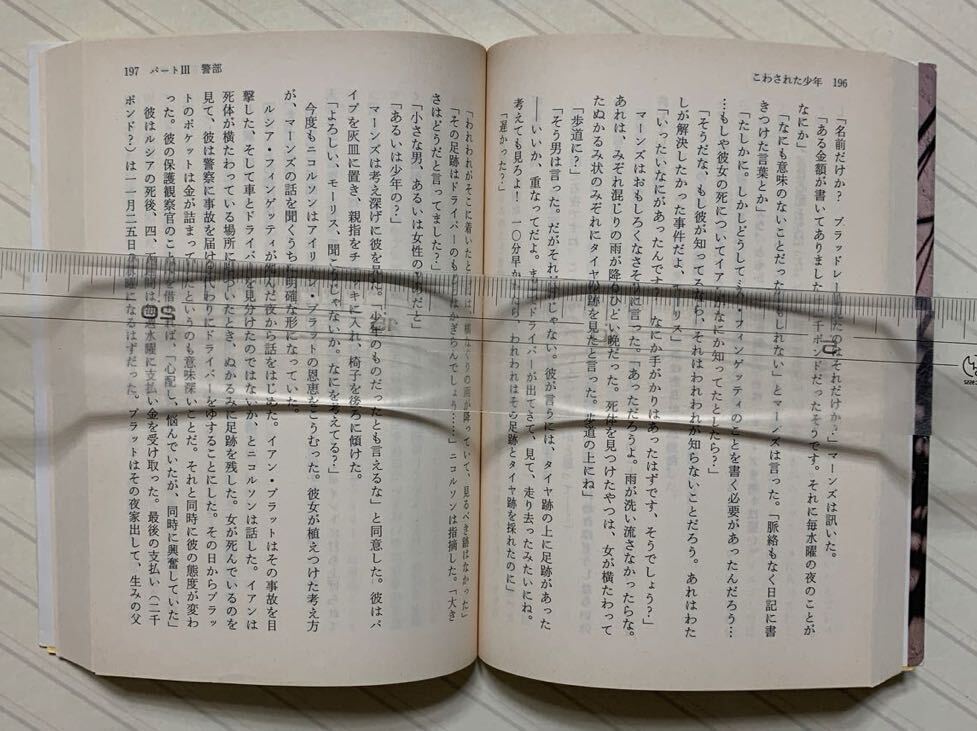 こわされた少年 196
「名前だけか? ブラッドレー
それだけか?」マーンズは訊いた。
「ある金額が書いてありました
千ポンドだったそうです。それに毎水曜の夜のことが
なにか」
「なにも意味のないことだったかもしれない」とマーンズは言った。「脈絡もなく日記に書
きつけた言葉とか」
「たしかに。しかしどうして
フィンゲッティのことを書く必要があったんだろう…
…もしや彼女の死についてイアンがなにか知ってたとしたら?」
「そうだな、もし彼が知ってるなら、それはわれわれが知らないことだろう。あれはわた
しが解決したかった事件だよ、モーリス」
「いったいなにがあったんです? なにか手がかりはあったはずです、そうでしょう?」
マーンズはおもしろくなさそうに言った。「あっただろうよ。雨が洗い流さなかったらな。
あれは、みぞれ混じりの雨が降りひどい晩だった。死体を見つけたやつは、女が横たわって
たぬかるみ状のみぞにタイヤの跡を見たと言った。歩道の上にね」
「歩道に?」
「そう男は言った。だがそれだけじゃない。彼が言うには、タイヤ跡の上に足跡があった
――いいか、重なってだよ。まるでドライバーが出てきて、見て、走り去ったみたいにね。
考えても見ろよ! 一〇分早かったら、われわれはその足跡とタイヤ跡を採れたのに」
「遅かった?」
197 パートⅢ 警部
「われわれがそこに着いたときには、横なぐりの雨が降っていて、見るべき跡はなかった」
「その足跡はドライバーのものとはかぎらんでしょう……」ニコルソンは指摘した。「大き
さはどうだと言ってました?」
「小さな男、あるいは女性のものだと」
「あるいは少年の?」
マーンズは考え深げに彼を見た。「少年のものだったとも言えるな」と同意した。彼はパ
イプを灰皿に置き、親指をチョッキに入れ、椅子を後ろに傾けた。
「よろしい、モーリス、聞こうじゃないか。なにを考えてる?」
今度もニコルソンはアイリーン・プラットの恩恵をこうむった。彼女が植えつけた考え方
が、マーンズの話を聞くうちに明確な形になっていた。
ルシア・フィンゲッティが死んだ夜から話をはじめた。イアン・プラットはその事故を目
撃した、そして車とドライバーを見分けたのではないか、とニコルソンは話した。イアンは
死体が横たわっている場所に近づいたとき、ぬかるみに足跡を残した。女が死んでいるのを
見て、彼は警察に事故を届ける代わりにドライバーをゆすることにした。その日からプラッ
トのポケットは金が詰まっていたというのも意味深いことだ。それと同時に彼の態度が変わ
った。彼の保護観察官のことばを借りれば、「心配し、悩んでいたが、同時に興奮していた」
彼はルシアの死後、四、五週間は毎週水曜に支払い金を受け取った。最後の支払い(二千
ポンド?)は一一月二五日の水曜になるはずだった。プラットはその夜家出して、生みの父